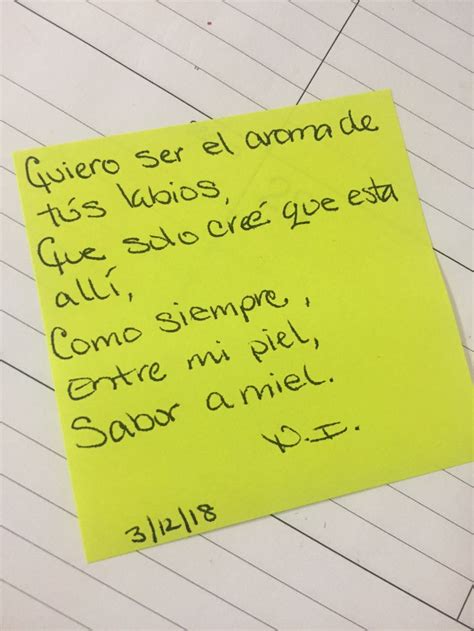 Quiero ser el aroma de
tús labios,
Que solo creé que esta
allí,
Como siempre,
Entre mi piel,
Sabor a miel.
D.I.
3/12/18